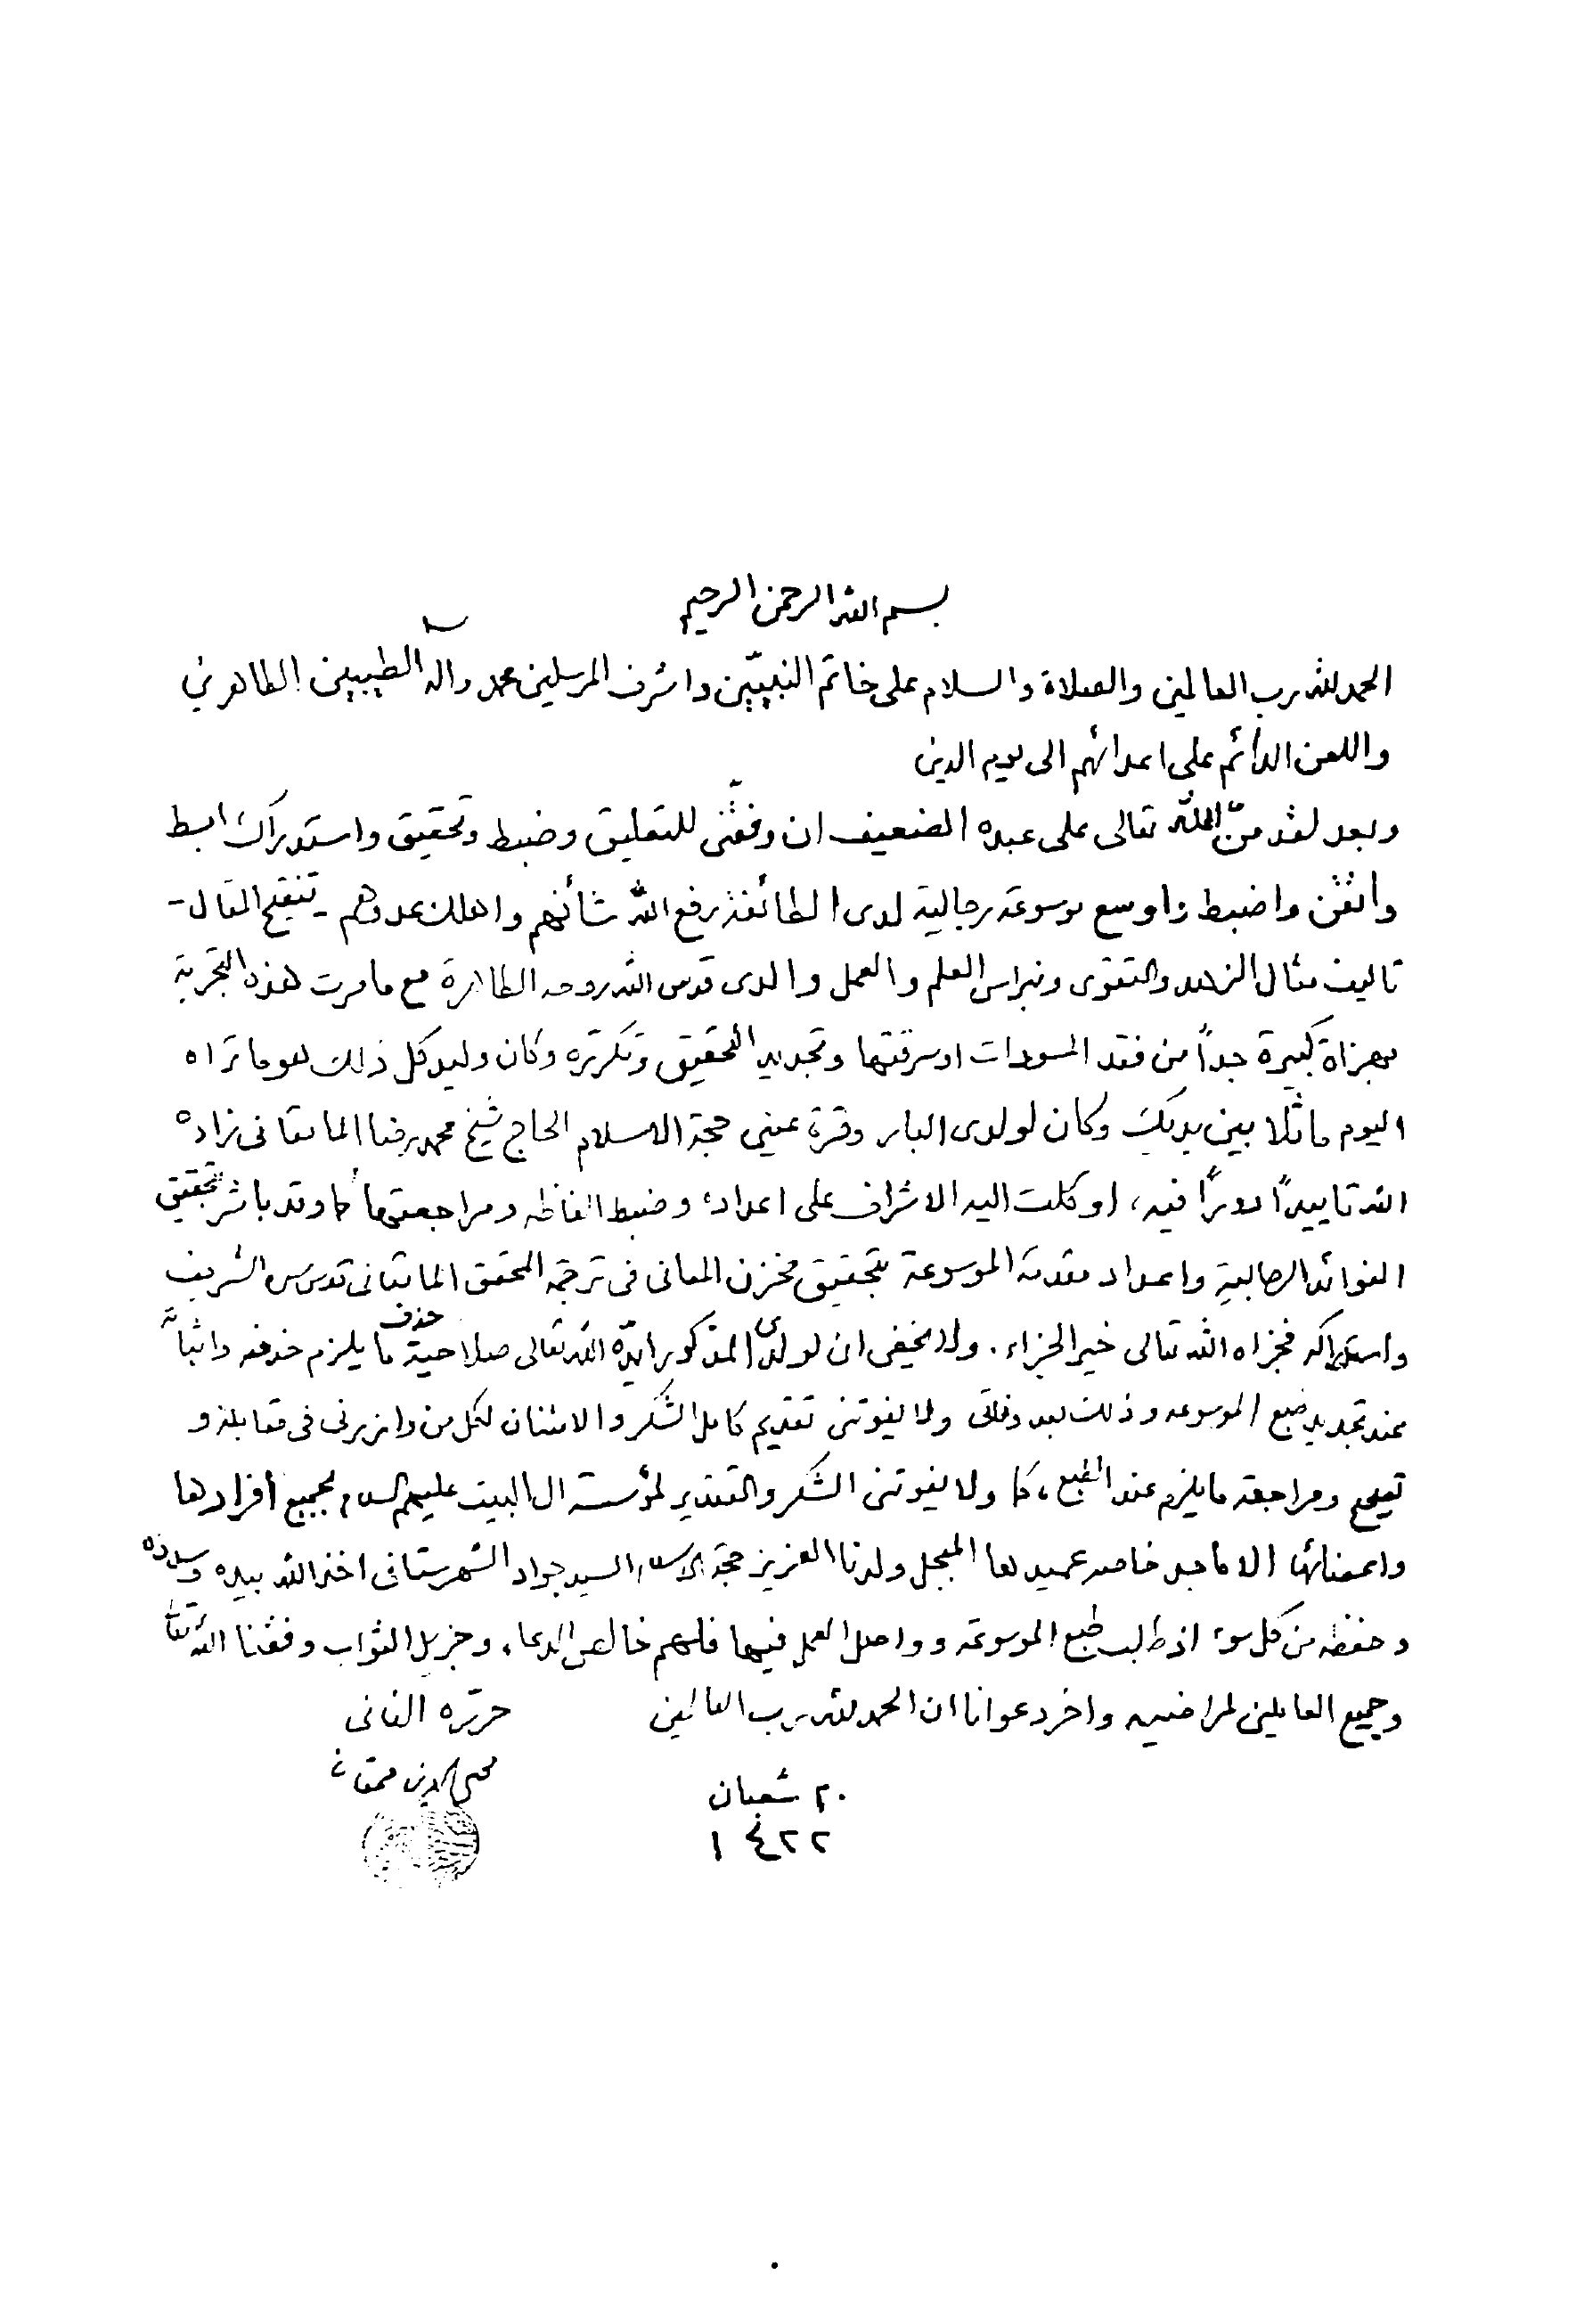 بسم الله الرحمن الرحيم
الحمد لله رب العالمين والصلاة والسلام على خاتم النبيّين واشرف المرسلين محمد واله الطيبين الطاهرين
واللعن الدائم على اعدائهم الى يوم الدين
وبعد لقد منّ الله تعالى على عبده الضعيف ان وفقّني للتعليق وضبط وتحقيق واستدراك ابسط
وأتقن واضبط واوسع موسوعة رجالية لدى الطائفة رفع الله شأنهم واهلك عدوهم - تنقيح المقال -
تاليف مثال الزهد والتقوى ونبراس العلم والعمل والدى قدس الله روحه الطاهرة مع ما مرت هذه التجربة
بهزاة كبيرة جداً من فقد المسودات او سرقتها وتجديد التحقيق وتكرّره وكان وليد كل ذلك هو ما تراه
اليوم ماثلا بين يديك وكان لولدى البار وقرة عيني حجة الاسلام الحاج شيخ محمد رضا المامقانى زاده
الله تاييداً دوراً فيه، اوكلت اليه الاشراف على اعداده وضبط الفاظه ومراجعتها كما وقد باشر بتحقيق
الفوائد الرجالية واعداد مقدمة الموسوعة بتحقيق مخزن المعانى فى ترجمة المحقق المامقانى قدس سره الشريف
واستدراكه فجزاه الله تعالى خير الجزاء. ولا يخفى ان لولدى المذكور ايدّه الله تعالى صلاحية حذف ما يلزم حذفه واثباته
عند تجديد طبع الموسوعه وذلك بعد وفاتى ولا يفوتنى تقديم كامل الشكر والامتنان لكل من وازرنى فى مقابلة و
تصحيح ومراجعة ما يلزم عند الطبع، كما ولا يفوتنى الشكر والتقدير لمؤسسة ال البيت عليهم السلام بجميع أفرادها
واعضائها الاماجد خاصه عميدها المبجل ولدنا العزيز حجة الاسلام السيد جواد الشهرستانى اخذ الله بيده
وحفظه من كل سوء اذ طالب طبع الموسوعة وواصل العمل فيها فلهم خالص الدعاء وجزيل الثواب وفقنا الله تعالى
وجميع العاملين لمراضيه واخر دعوانا ان الحمد لله رب العالمين
حرّره الفانى
محيى الدين مامقانى
٢٠ شعبان
١٤٢٢